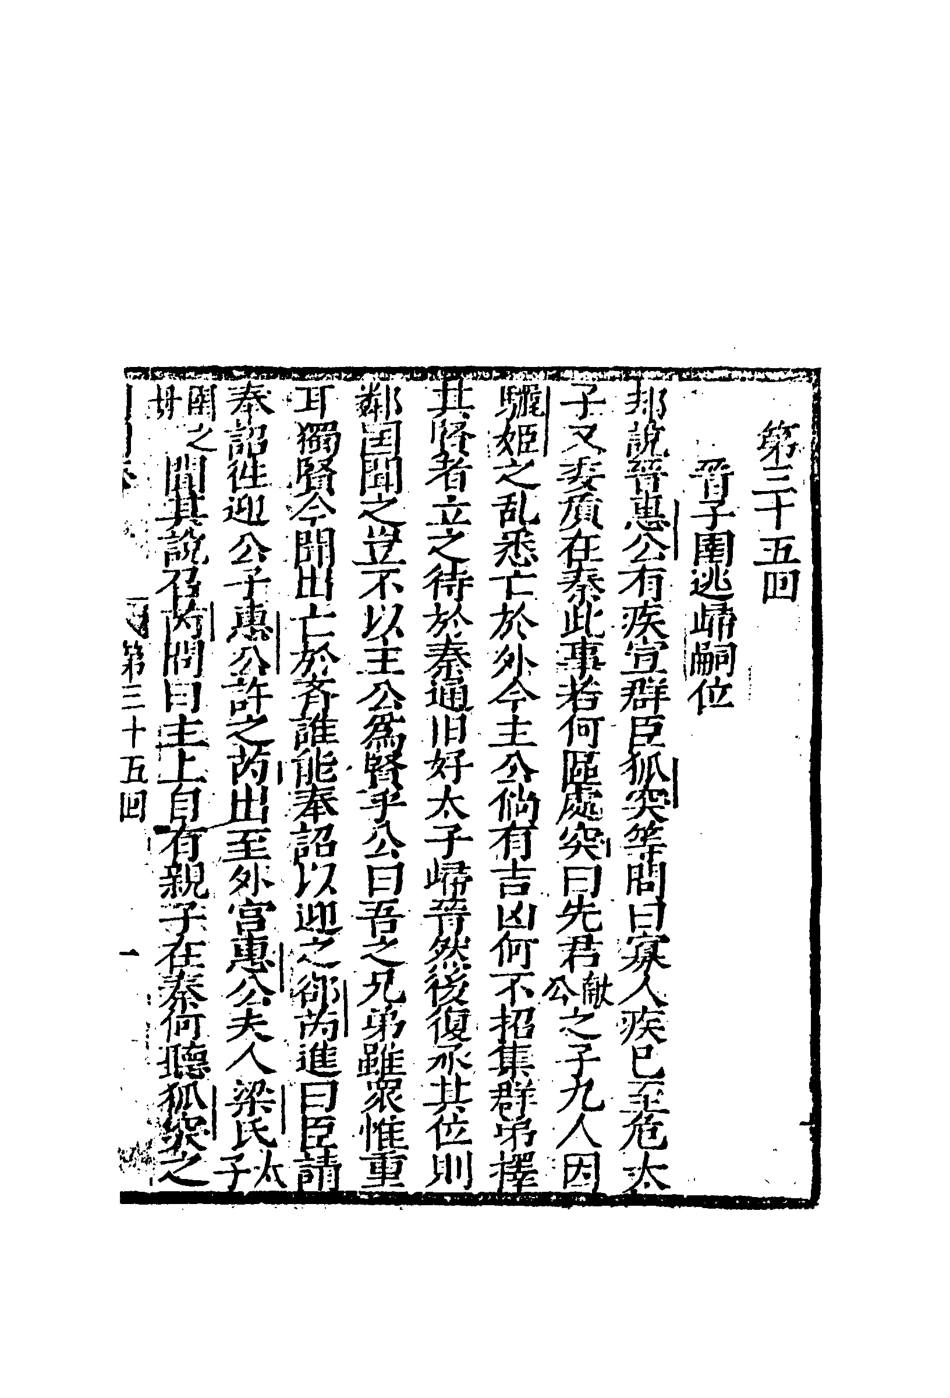 第三十五回
晉子圉逃歸嗣位
却說晉惠公有疾宣群臣狐突等問曰寡人疾已至危太
子又委質在秦此事若何區處突曰先君獻公之子九人因
驪姬之乱悉亡於外今主公倘有吉凶何不招集群弟擇
其賢者立之待於秦通旧好太子歸晉然後復承其位則
鄰国聞之豈不以主公爲賢乎公曰吾之兄弟雖衆惟重
耳獨賢今聞出亡於齐誰能奉詔以迎之郤芮進曰臣請
奉詔徃迎公子惠公許之芮出至外宮惠公夫人梁氏太子
圉之母聞其說召芮問曰主上自有親子在秦何聽狐突之
第三十五回
一